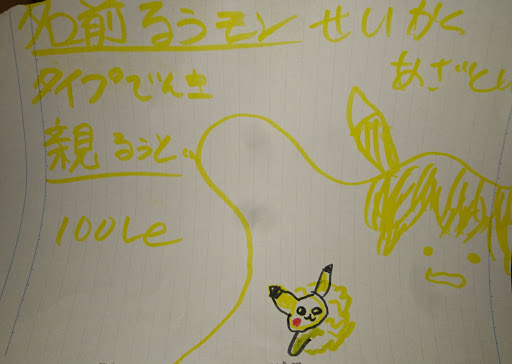 名前るうモン せいかく
あざとい
タイプでん土
親るうど
100Le